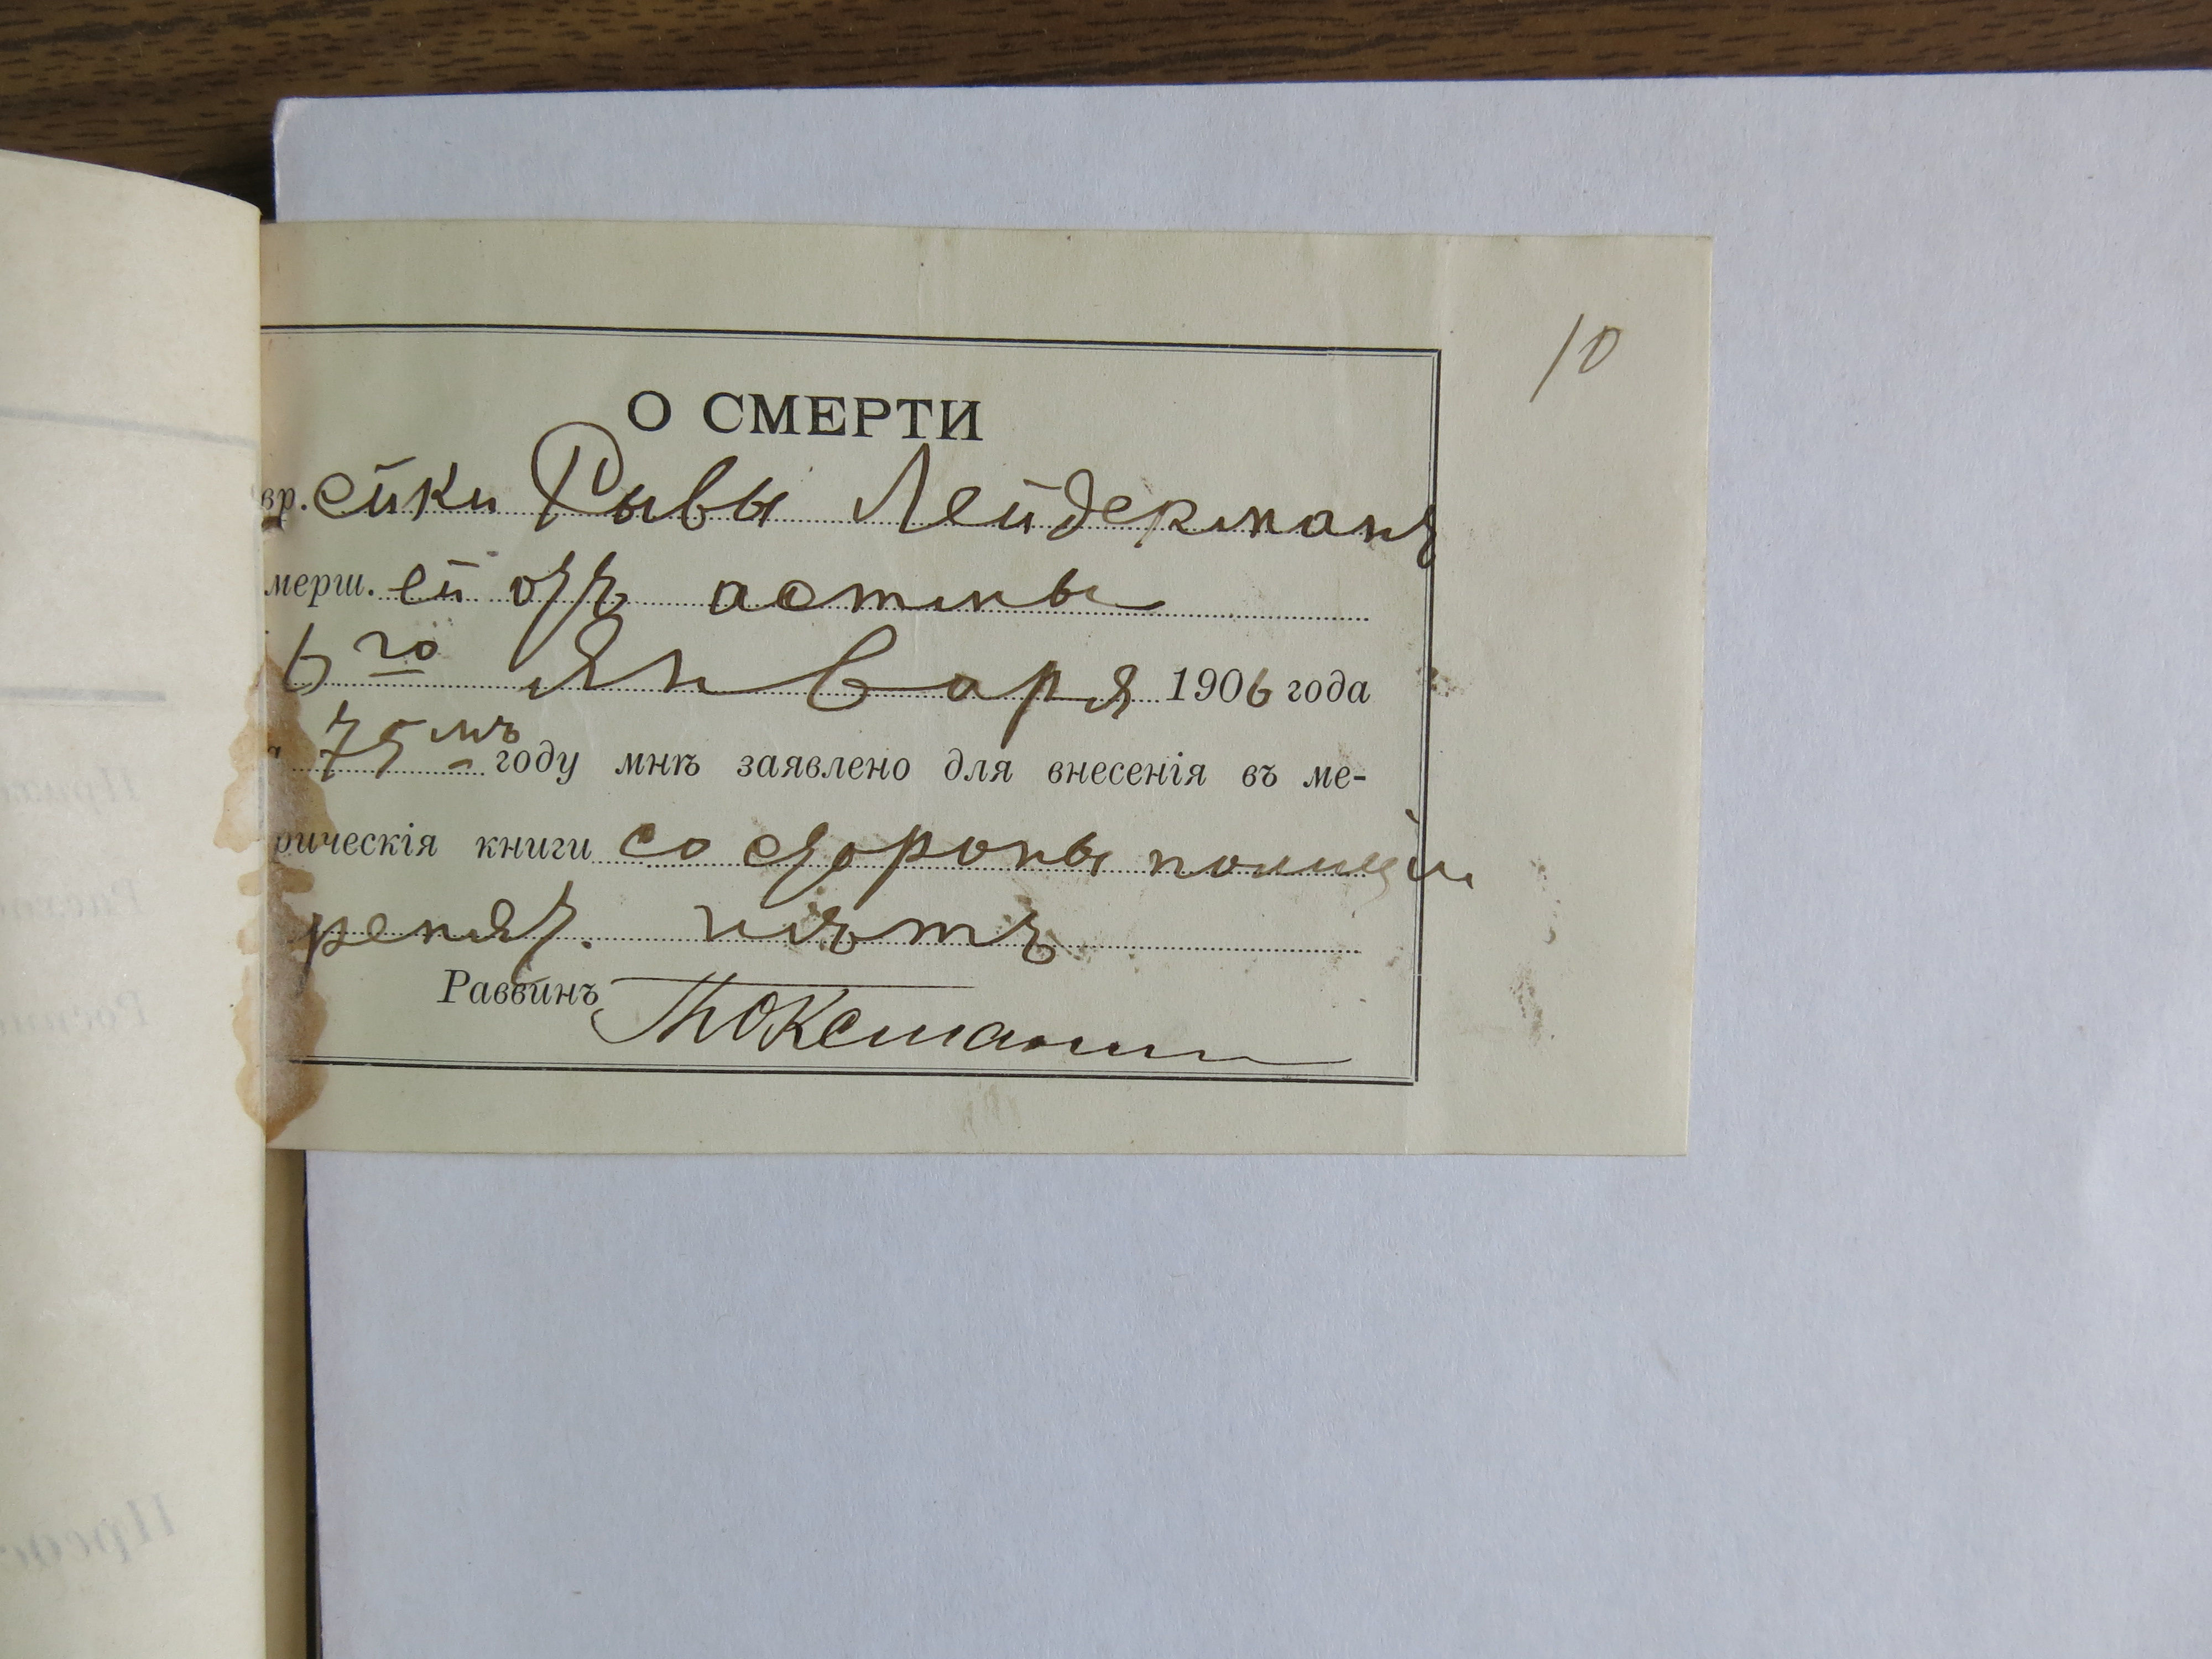 10
О СМЕРТИ
вр. ейки Рывы Лейдерманъ
мерш. ей отъ астмы
6го Января 1906 года
75мъ году мнѣ заявлено для внесенія въ ме-
рическія книги со стороны полиціи
репят. нѣтъ
Раввинъ